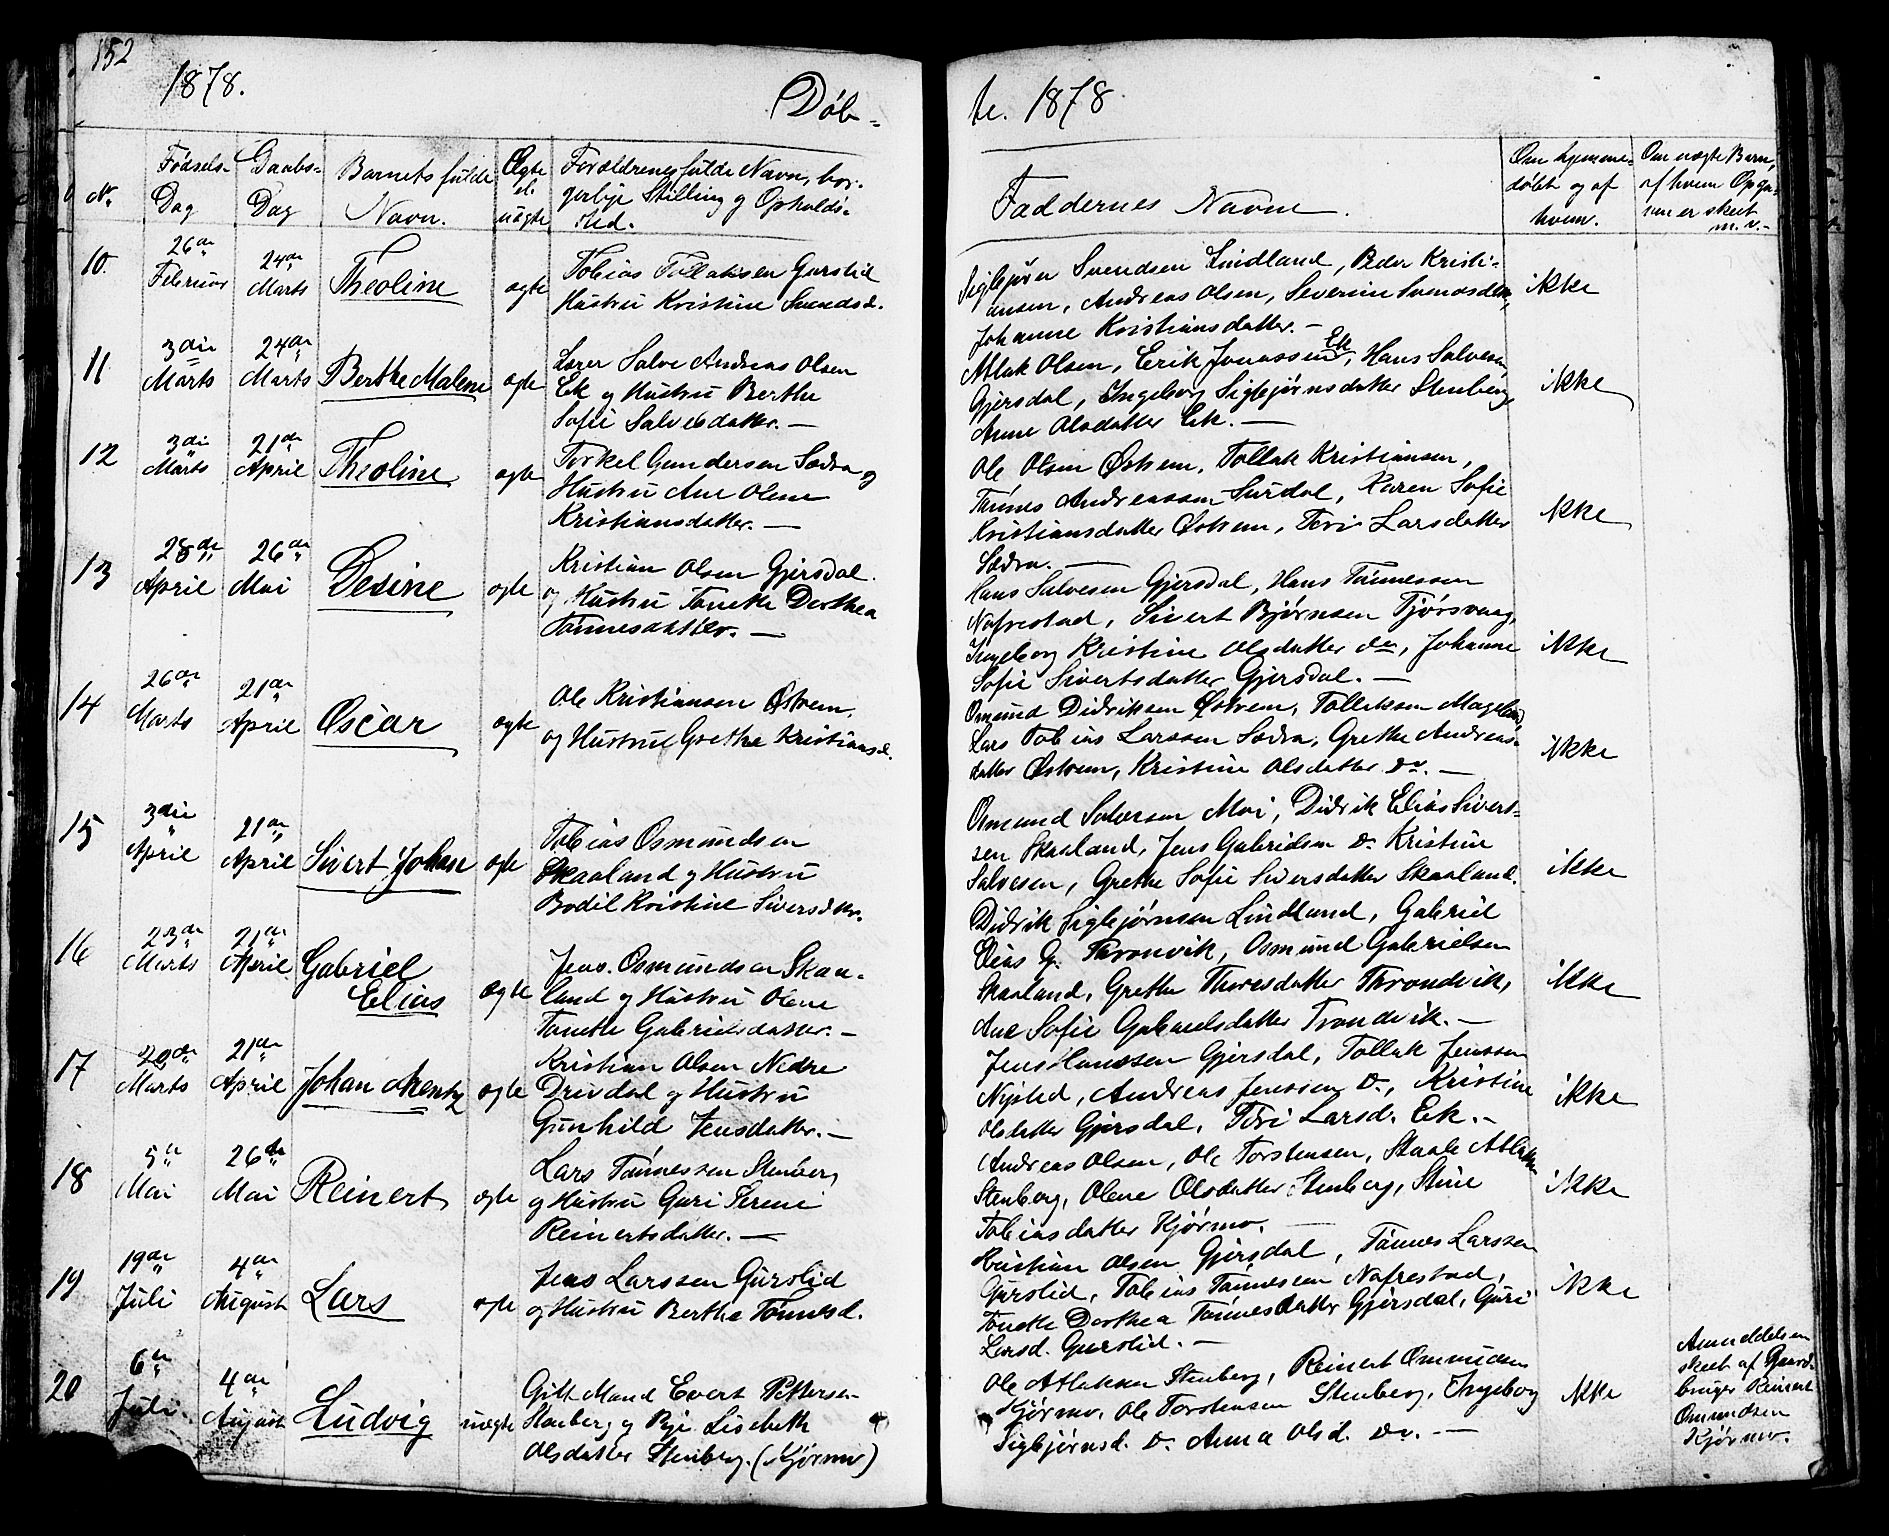 152
1878.
Døb-
te. 1878.
No
Fødsels-
Dag
Daabs-
Dag
Barnets fulde
Navn.
Ægte
el.
uægte
Forældrenes fulde Navn, bor-
gerlige Stilling og Opholds-
sted.
Faddernes Navne.
Om hjemme-
døbt og af
hvem.
Om uægte Barn,
af hvem Opga-
ven er skeet
m. v.
10.
26de
Februar
24de
Marts
Theoline
ægte
Tobias Tollaksen Gurslid
Hustru Kristine Svendsd.
Siglejørn Svendsen Lindland, Peder Kristi-
ansen, Andreas Olsen, Severine Svendsdtr,
Johanne Kristiansdatter. —
ikke
11
3die
Marts
24de
Marts
Berthe Malene
ægte
Lærer Salve Andreas Olsen
Ek og Hustru Berthe
Sofie Salvesdatter. —
Atlak Olsen, Erik Jonassen Ek, Hans Salvesen
Gjersdal, Ingeborg Siglejørnsdatter Stenberg,
Anne Olsdatter Ek. —
ikke
12
3die
Marts
21de
April
Theoline
ægte
Torkel Gundersen Sædra og
Hustru Ane Olene
Kristiansdatter. —
Ole Olsen Østrem, Tollak Kristiansen,
Tønnes Andreassen Surdal, Karen Sofie
Kristiansdatter Østrem, Teri Larsdatter
Sædra. —
ikke
13
28de
April
26de
Mai
Desine
ægte
Kristian Olsen Gjersdal
og Hustru Tonette Dorthea
Tønnesdatter. —
Hans Salvesen Gjersdal, Hans Tønnessen
Nafrestad, Sivert Bjørnsen Tjørsvaag,
Ingeborg Kristine Olsdatter do, Johanne
Sofie Sivertsdatter Gjersdal. —
ikke
14
26de
Marts
21de
April
Oscar
ægte
Ole Kristiansen Østrem,
og Hustrue Grethe Kristiansd.
Osmund Didriksen Østrem, Tolleksen Mageland,
Lars Tobias Larssen Sædra, Grethe Andreas-
datter Østrem, Kristine Olsdatter do. —
ikke
15
3die
April
21de
April
Sivert Johan
ægte
Tobias Osmundsen
Skaaland og Hustru
Bodil Kristine Siversdtr.
Osmund Salvesen Moi, Didrik Elias Sivert-
sen Skaaland, Jens Gabrielsen do. Kristine
Salvesen, Grethe Sofie Siversdatter Skaaland.
ikke
16
23de
Marts
21de
April
Gabriel
Elias
ægte
Jens Osmundsen Skaa-
land og Hustru Olene
Tonette Gabrielsdatter. —
Didrik Siglejørnsen Lindland, Gabriel
Elias G. Thronvik, Osmund Gabrielsen
Skaaland, Grethe Thoresdatter Throndvik,
Ane Sofie Gabrielsdatter Trondvik. —
ikke
17
29de
Marts
21de
April
Johan Mentz
ægte
Kristian Olsen Nedre
Drivdal og Hustru
Gunhild Jensdatter. —
Jens Hanssen Gjersdal, Tollak Jenssen
Nysted, Andreas Jenssen do., Kristine
Olsdatter Gjersdal, Teri Larsd. Eek. —
ikke
18
5te
Mai
26de
Mai
Reinert
ægte
Lars Tønnessen Stenberg
og Hustru Guri Serene
Reinertsdatter. —
Andreas Olsen, Ole Torstensen, Staale Atlaksen
Stenberg, Olene Olsdatter Stenberg, Stine
Tobiasdatter Kjørmo. —
ikke
19
19de
Juli
4de
August
Lars
ægte
Jens Larssen Gurslid
og Hustru Berthe Tønnesd.
Kristian Olsen Gjersdal, Tønnes Larssen
Gurslid, Tobias Tønnesen Nafrestad,
Tonette Dorthea Tønnesdatter Gjersdal, Guri
Larsd. Gurslid. —
ikke
20
6te
Juli
4de
August
Ludvig
uægte
Gift Mand Evert Pettersen
Stenberg og Pige Lisebeth
Olsdatter Stenberg. (Kjørmo)
Ole Atlaksen Stenberg, Reinert Omundsen
Kjørmo, Ole Torstensen Stenberg, Ingeborg
Siglejørnsd. do. Anna Olsd. do. —
ikke
Anmeldelsen
skeet af Gaard-
bruger Reinert
Omundsen
Kjørmo.